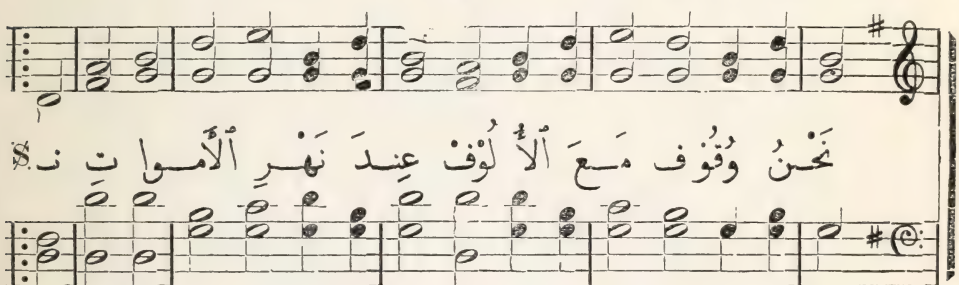 نَحْنُ وُقُوْف مَـعَ ٱلْأُ لُوْفْ عِنـدَ نَهْـرِ ٱلْأَمـوا تِ نـ